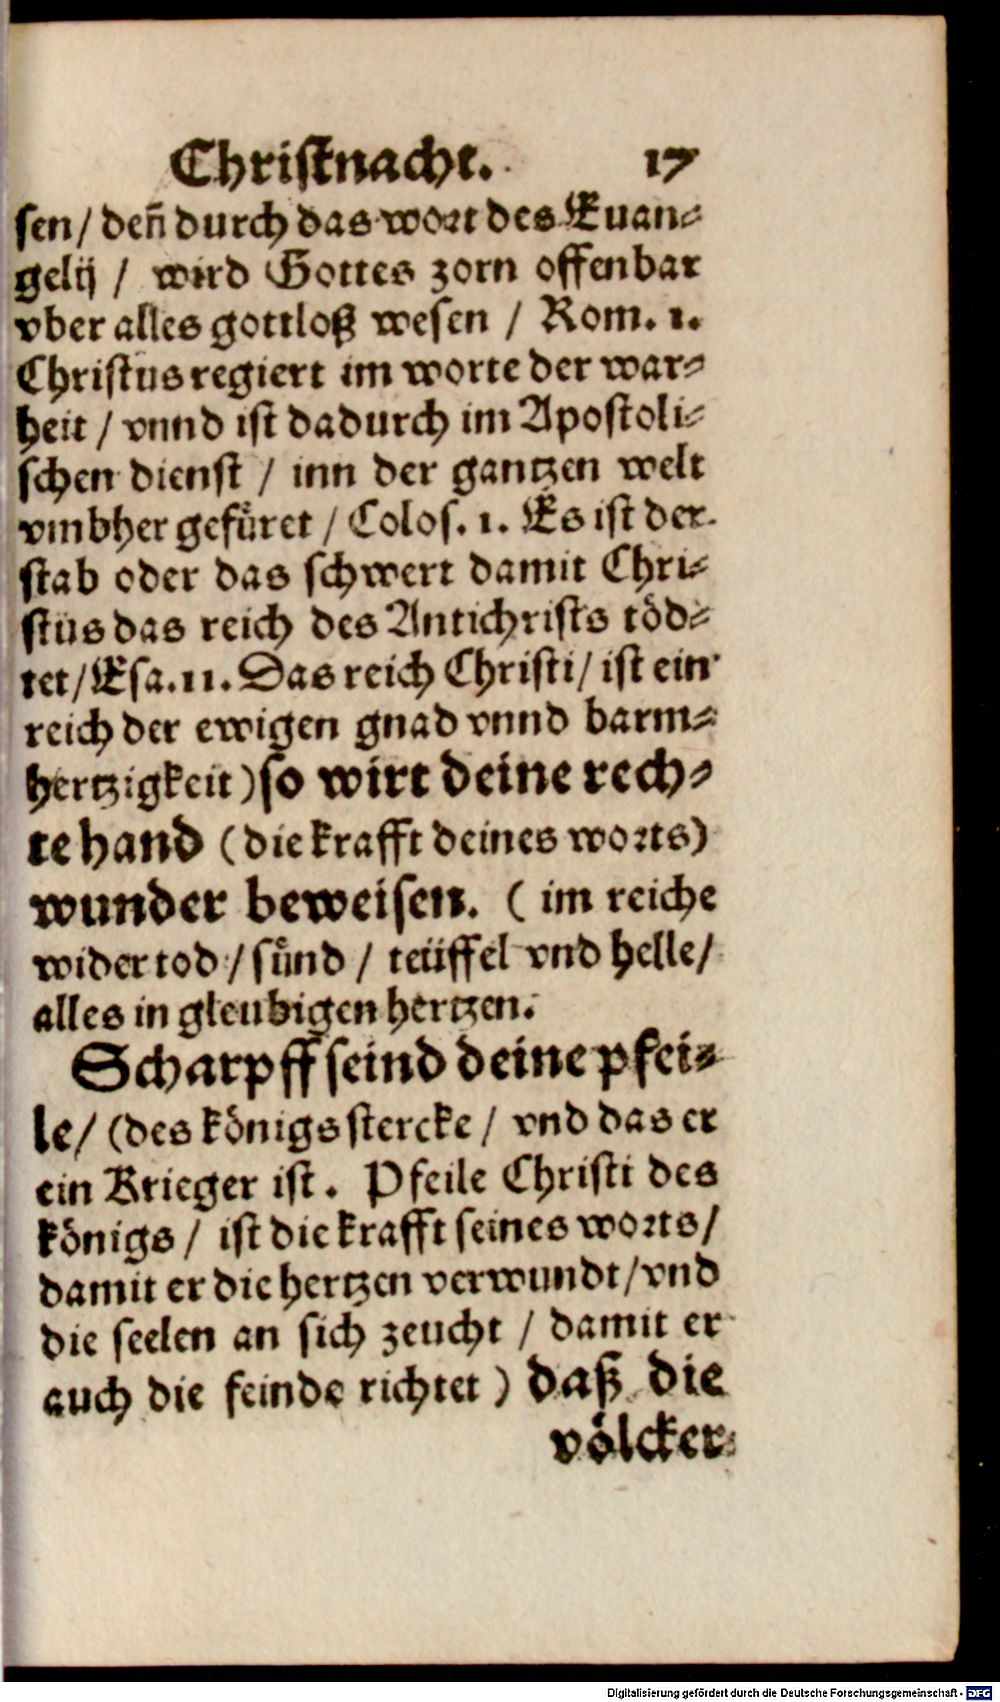 Christnacht. 17
sen/ deñ durch das wort des Euan-
gelij / wird Gottes zorn offenbar
vber alles gottloß wesen / Rom. 1.
Christus regiert im worte der war-
heit / vnnd ist dadurch im Apostoli-
schen dienst / inn der gantzen welt
vmbher gefüret / Colos. 1. Es ist der
stab oder das schwert damit Chri-
stus das reich des Antichrists töd-
tet/ Esa. 11. Das reich Christi/ ist ein
reich der ewigen gnad vnnd barm-
hertzigkeit) so wirt deine rech-
te hand (die krafft deines worts)
wunder beweisen. ( im reiche
wider tod / sünd / teüffel vnd helle/
alles in gleubigen hertzen.
Scharpff seind deine pfei-
le/ (des königs stercke / vnd das er
ein Krieger ist. Pfeile Christi des
königs / ist die krafft seines worts/
damit er die hertzen verwundt/ vnd
die seelen an sich zeucht / damit er
auch die feinde richtet ) daß die
völcker
Digitalisierung gefördert durch die Deutsche Forschungsgemeinschaft - DFG